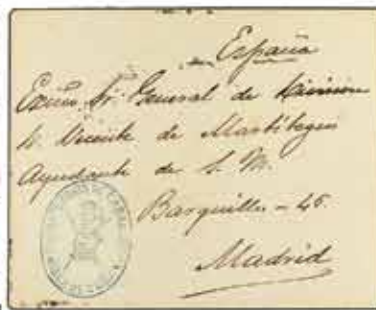 España
Exmo Sr. General de División
D. Vicente de Martitegui
Ayudante de S. M.
Barquillo - 45.
Madrid